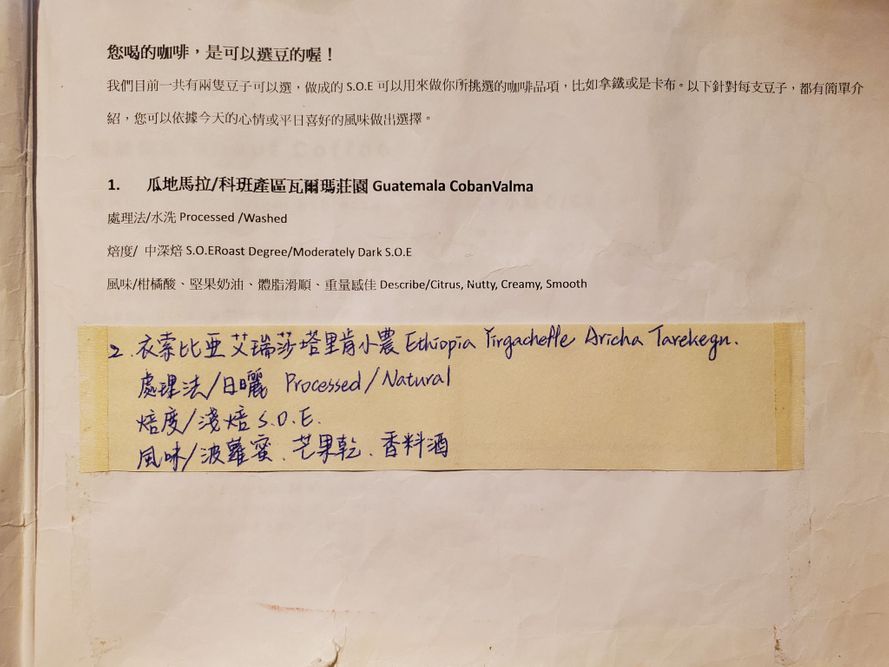 您喝的咖啡，是可以選豆的喔！
我們目前一共有兩隻豆子可以選，做成的 S.O.E 可以用來做你所挑選的咖啡品項，比如拿鐵或是卡布。以下針對每支豆子，都有簡單介
紹，您可以依據今天的心情或平日喜好的風味做出選擇。
1. 瓜地馬拉/科班產區瓦爾瑪莊園 Guatemala CobanValma
處理法/水洗 Processed /Washed
焙度/ 中深焙 S.O.ERoast Degree/Moderately Dark S.O.E
風味/柑橘酸、堅果奶油、體脂滑順、重量感佳 Describe/Citrus, Nutty, Creamy, Smooth
2. 衣索比亞 艾瑞莎塔里肯小農 Ethiopia Yirgacheffe Aricha Tarekegn.
處理法/日曬 Processed/Natural
焙度/淺焙 S.O.E.
風味/波蘿蜜、芒果乾、香料酒